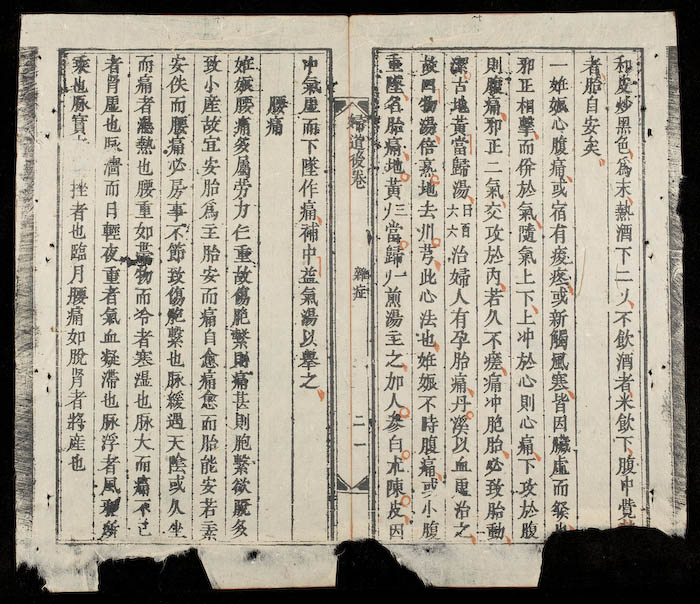 和皮炒黑色為末熱酒下二乂不飲酒者米飲下腹中覺
者胎自安矣
一姙娠心腹痛或宿有痰疼或新觸風寒皆因臟虛而發也
邪正相擊而併於氣隨氣上下上冲於心則心痛下攻於腹
則腹痛邪正二氣交攻於內若久不瘥痛冲胞胎必致胎動
潔古地黃當歸湯日百六六治婦人有孕胎痛丹溪以血患治之
故四物湯倍熟地去川芎此心法也姙娠不時腹痛或小腹
重墜名胎痛地黃三乂當歸一乂煎湯主之加人參白朮陳皮因
婦道後卷
雜症
二一
中氣虛而下墜作痛補中益氣湯以舉之
腰痛
姙娠腰痛多屬勞力仁重故傷胞繫則痛甚則胞繫欲脫多
致小產故宜安胎為主胎安而痛自愈痛愈而胎能安若素
安佚而腰痛必房事不節致傷胞繫也脉緩遇天陰或久坐
而痛者濕熱也腰重如帶物而冷者寒濕也脉大而痛不已
者腎虛也脉濇而日輕夜重者氣血凝滯也脉浮者風邪所
乘也脉實 挫者也臨月腰痛如脫腎者將產也